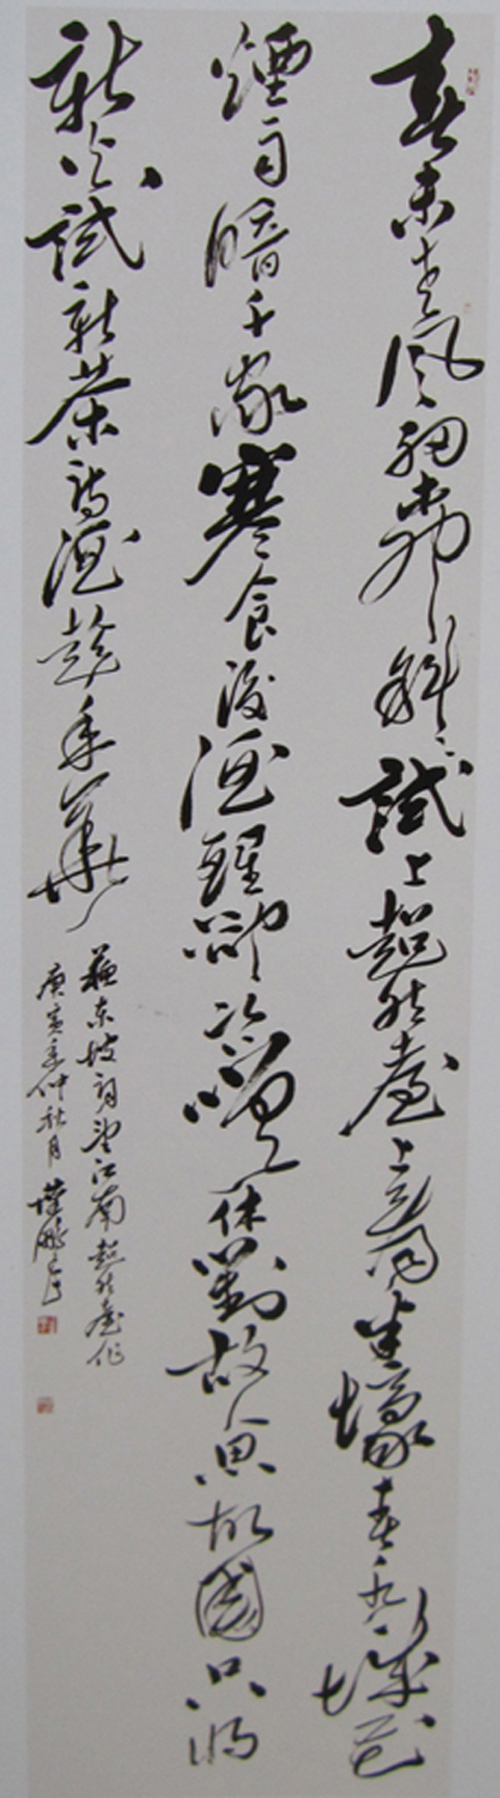 春未老風細柳斜斜試上超然臺上看半壕春水一城花
煙雨暗千家寒食後酒醒卻咨嗟休對故人思故國只將
新火試新茶詩酒趁年華
蘇東坡詞望江南超然臺作
庚寅年仲秋月